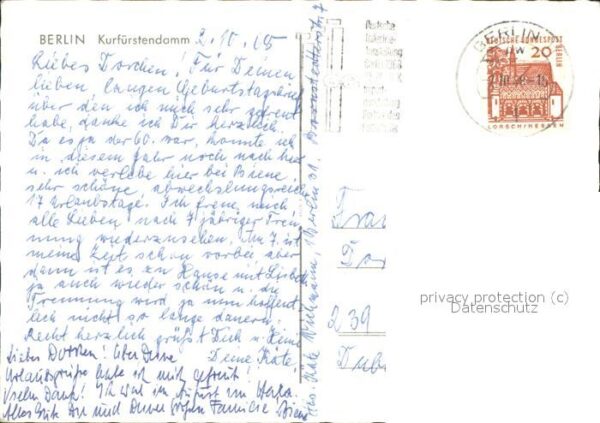 BERLIN Kurfürstendamm 2.10.65
Liebes Dorchen! Für Deinen
lieben, langen Geburtstagsbrief
über den ich mich sehr gefreut
habe, danke ich Dir herzlich.
Da es ja der 60. war, konnte ich
in diesem Jahr noch nach hier
u. ich verlebe hier bei Biene
sehr schöne, abwechslungsreiche
17 Urlaubstage. Ich freue mich
alle Lieben nach 7 jähriger Tren-
nung wiederzusehen. Am 7. ist
meine Zeit schon vorbei, aber
dann ist es zu Hause mit
ja auch wieder schön u. die
Trennung wird ja nun hoffent-
lich nicht so lange dauern.
Recht herzlich grüßt Dich u. Heinz
Deine Käte.
Liebes Dorchen! Über Deine
Urlaubsgrüße habe ich mich gefreut!
Vielen Dank! Ich war im August im
Alles Gute Dir und Deiner großen Familie Biene
Abs. Käte Berlin 31,
BERLIN
DEUTSCHE BUNDESPOST
BERLIN
20
LORSCH/HESSEN
Frau
239
privacy protection (c)
Datenschutz